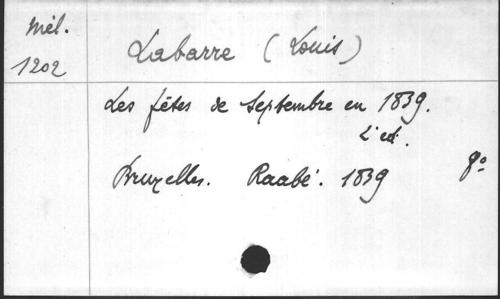 Mél.
1202
Labarre (Louis)
Les fêtes de Septembre en 1839.
2e ed.
Bruxelles. Raabé. 1839
8°